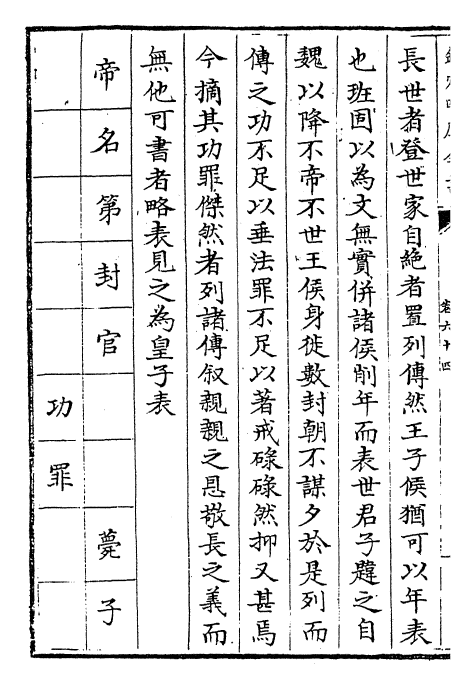 欽定四庫全書
卷六十四
長世者登世家自絶者置列傳然王子侯猶可以年表
也班固以為文無實併諸侯削年而表世君子韙之自
魏以降不帝不世王侯身徙數封朝不謀夕於是列而
傳之功不足以垂法罪不足以著戒碌碌然抑又甚焉
今摘其功罪傑然者列諸傳叙親親之恩敬長之義而
無他可書者略表見之為皇子表
帝 名 第 封 官 薨 子
功 罪